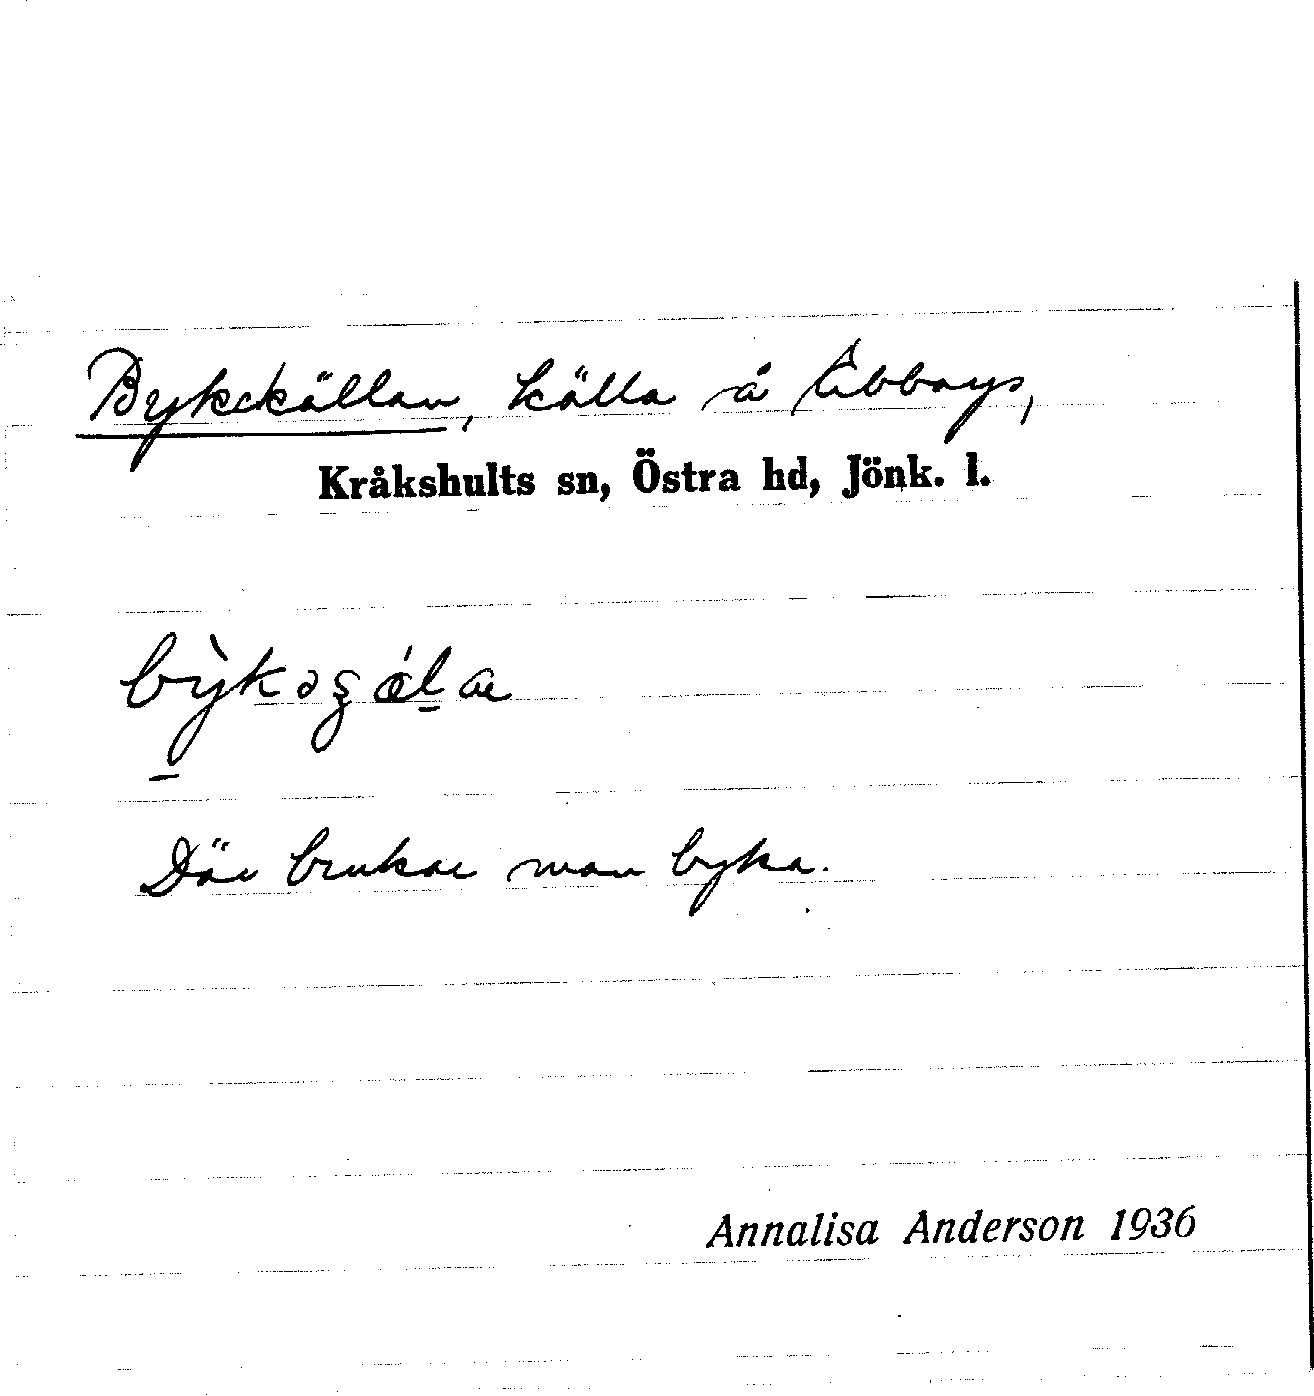 Bykekällan, källa å Åbborys,
Kråkshults sn, Östra hd, Jönk. l.
Där brukar man byka.
Annalisa Anderson 1936